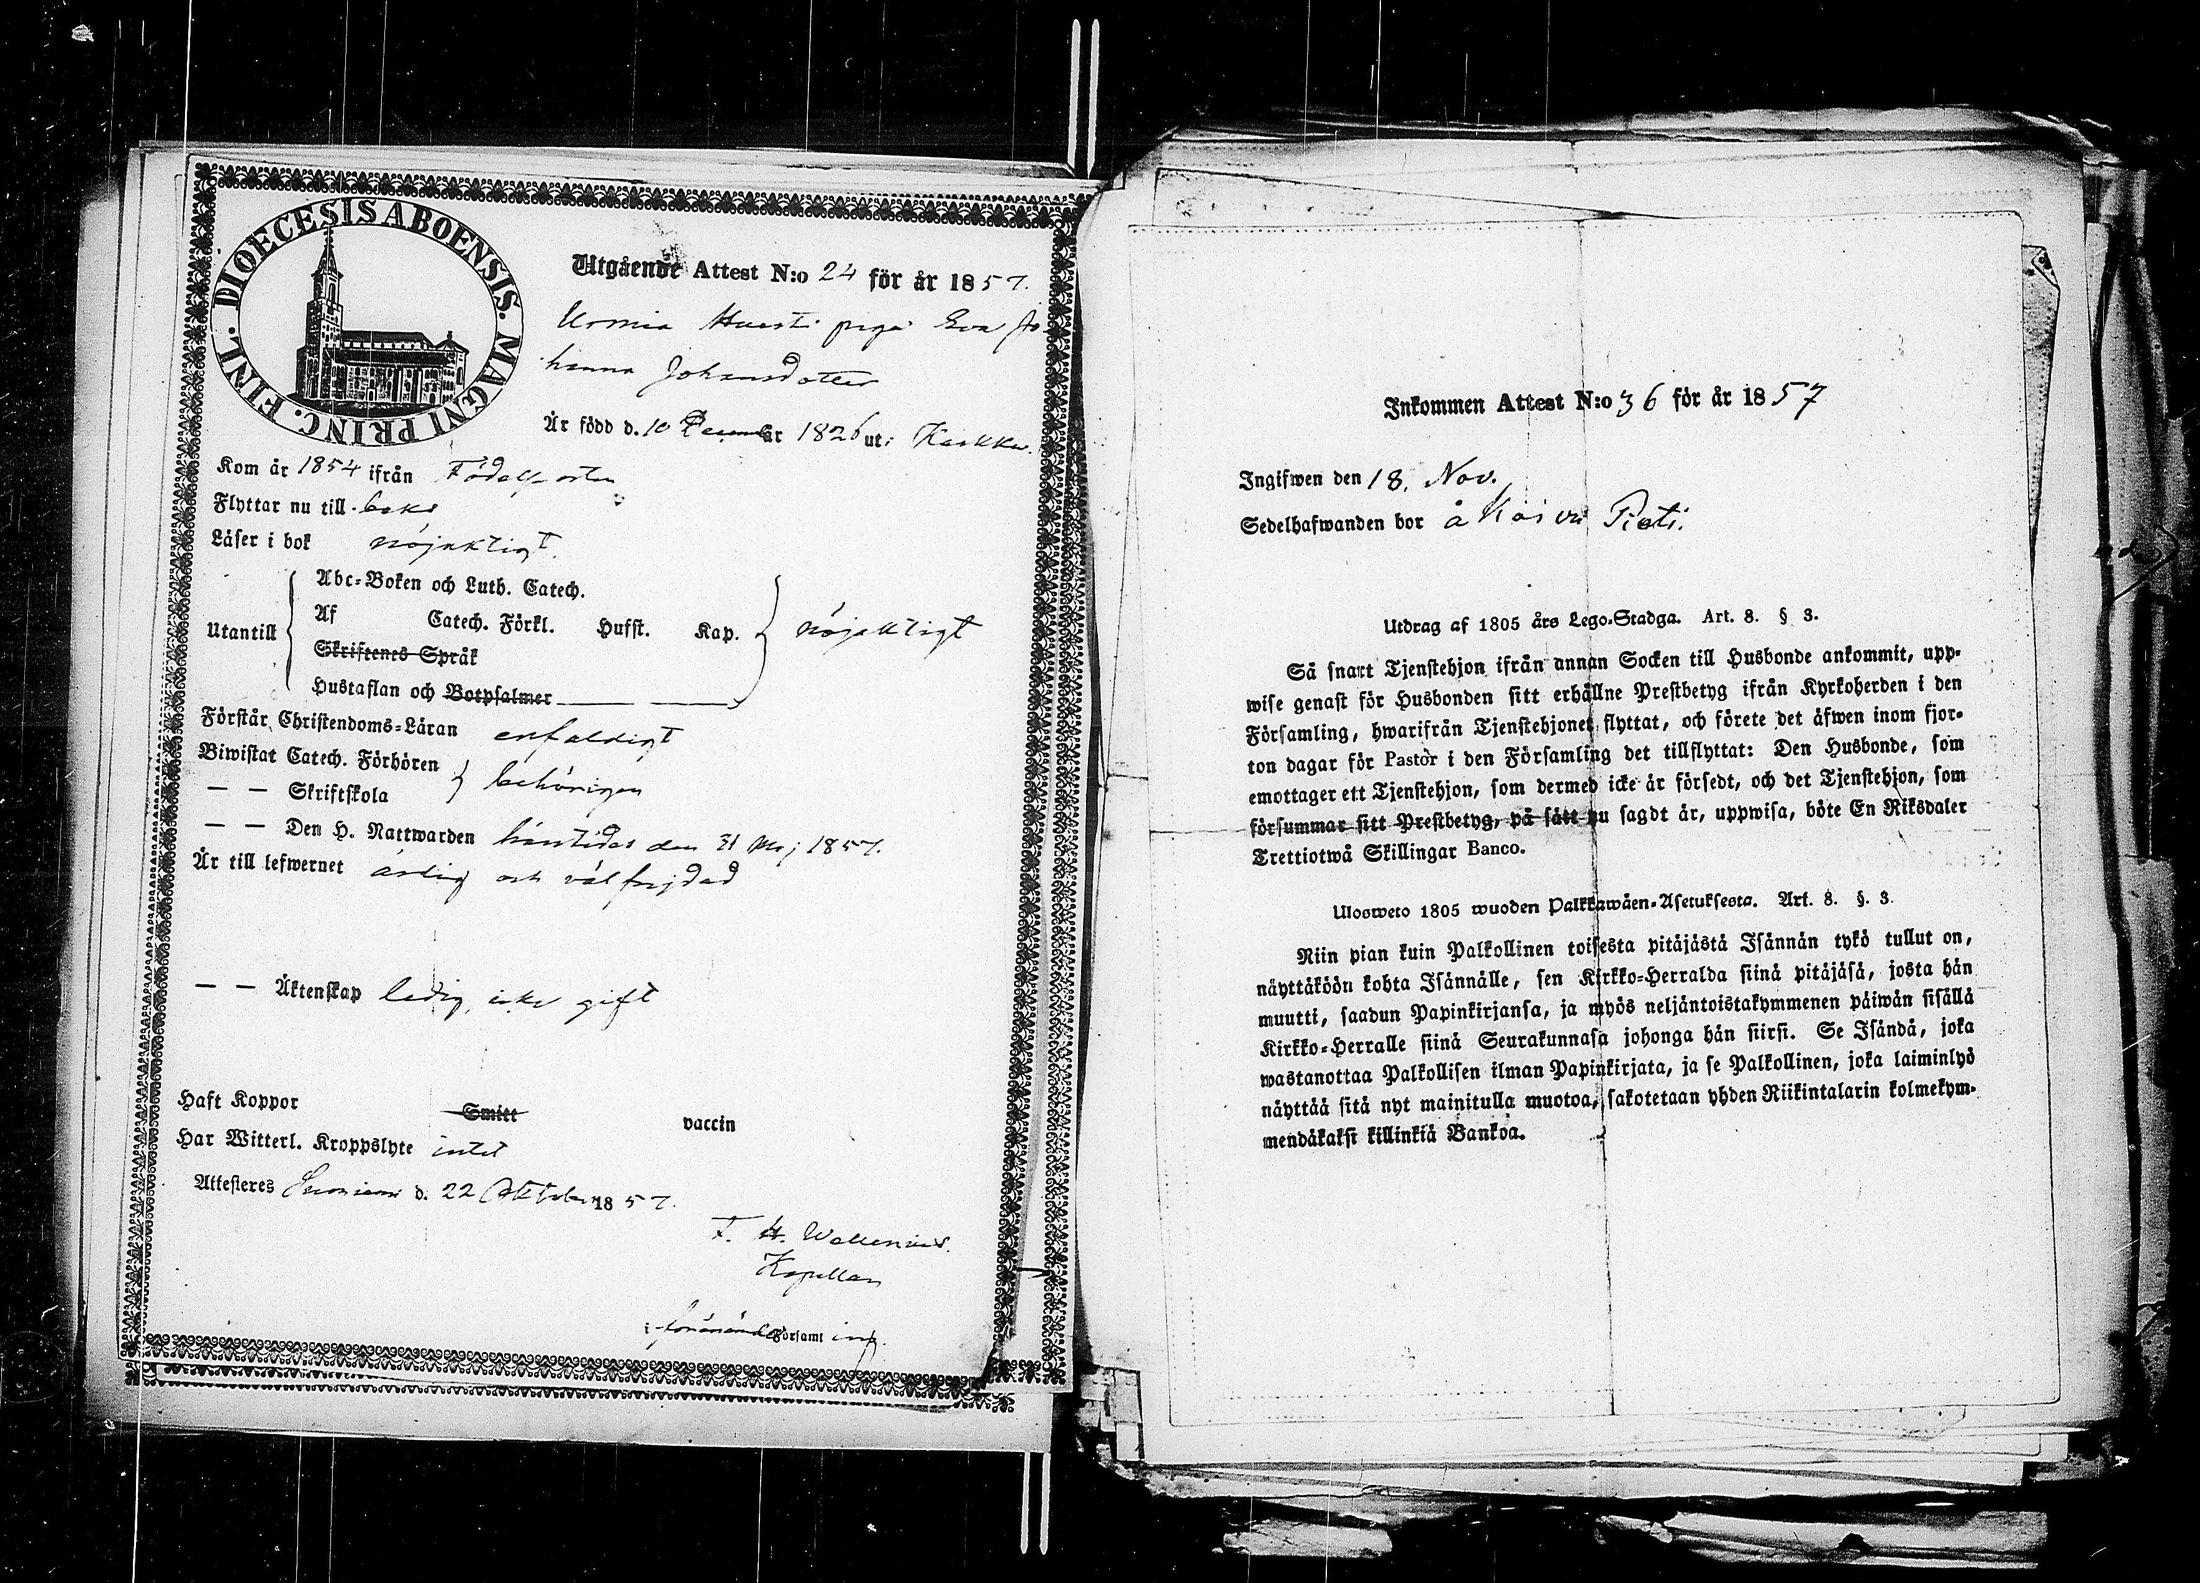 DIOECESIS ABOENSIS. MAGNI PRINC. FINL.
Utgående Attest N:o 24 för år 1857.
Uomia Huasti piga Eva Jo-
hanna Johansdotter
Är född d. 10 Decemb år 1826 ut: Karkku.
Kom år 1854 ifrån Födelseorten
Flyttar nu till
Läser i bok nöjaktigt.
Abc-Boken och Luth. Catech.
Af Catech. Förkl. Husst. Kap.
Utantill nöjaktigt
Skriftenes Språk
Hustaflan och Botpsalmer
Förstår Christendoms-Läran enfaldigt
Biwistat Catech. Förhören
— — Skriftskola behörigen
— — Den H. Nattwarden häntidas den 31 Maj 1857.
Är till lefwernet ärlig och välfrejdad
— — Äktenskap ledig, icke gift
Haft Koppor Smitt vaccin
Har Witterl. Kroppslyte intet
Attesteres Suoniemi d. 22 Oktober 1857.
F. H. Wallenius.
Kapellan
i förenämnde Församl ing.
Inkommen Attest N:o 36 för år 1857
Ingifwen den 18. Nov.
Sedelhafwanden bor å Koivu Pirti.
Utdrag af 1805 års Lego-Stadga. Art. 8. § 3.
Så snart Tjenstehjon ifrån annan Socken till Husbonde ankommit, upp-
wise genast för Husbonden sitt erhållne Prestbetyg ifrån Kyrkoherden i den
Församling, hwarifrån Tjenstehjonet flyttat, och förete det äfwen inom fjor-
ton dagar för Pastor i den Församling det tillflyttat: Den Husbonde, som
emottager ett Tjenstehjon, som dermed icke är försedt, och det Tjenstehjon, som
försummar sitt Prestbetyg, på sätt nu sagdt är, uppwisa, böte En Riksdaler
Trettiotwå Skillingar Banco.
Ulosweto 1805 wuoden Palkkawäen-Asetuksesta. Art. 8. §. 3.
Niin pian kuin Palkollinen toisesta pitäjästä Isännän tykö tullut on,
näyttäköön kohta Isännälle, sen Kirkko-Herralda siinä pitäjäsä, josta hän
muutti, saadun Papinkirjansa, ja myös neljäntoistakymmenen päiwän sisällä
Kirkko-Herralle siinä Seurakunnasa johonga hän siirsi. Se Isändä, joka
wastanottaa Palkollisen ilman Papinkirjata, ja se Palkollinen, joka laiminlyö
näyttää sitä nyt mainitulla muotoa, sakotetaan yhden Riikintalarin kolmekym-
mendäkaksi killinkiä Bankoa.